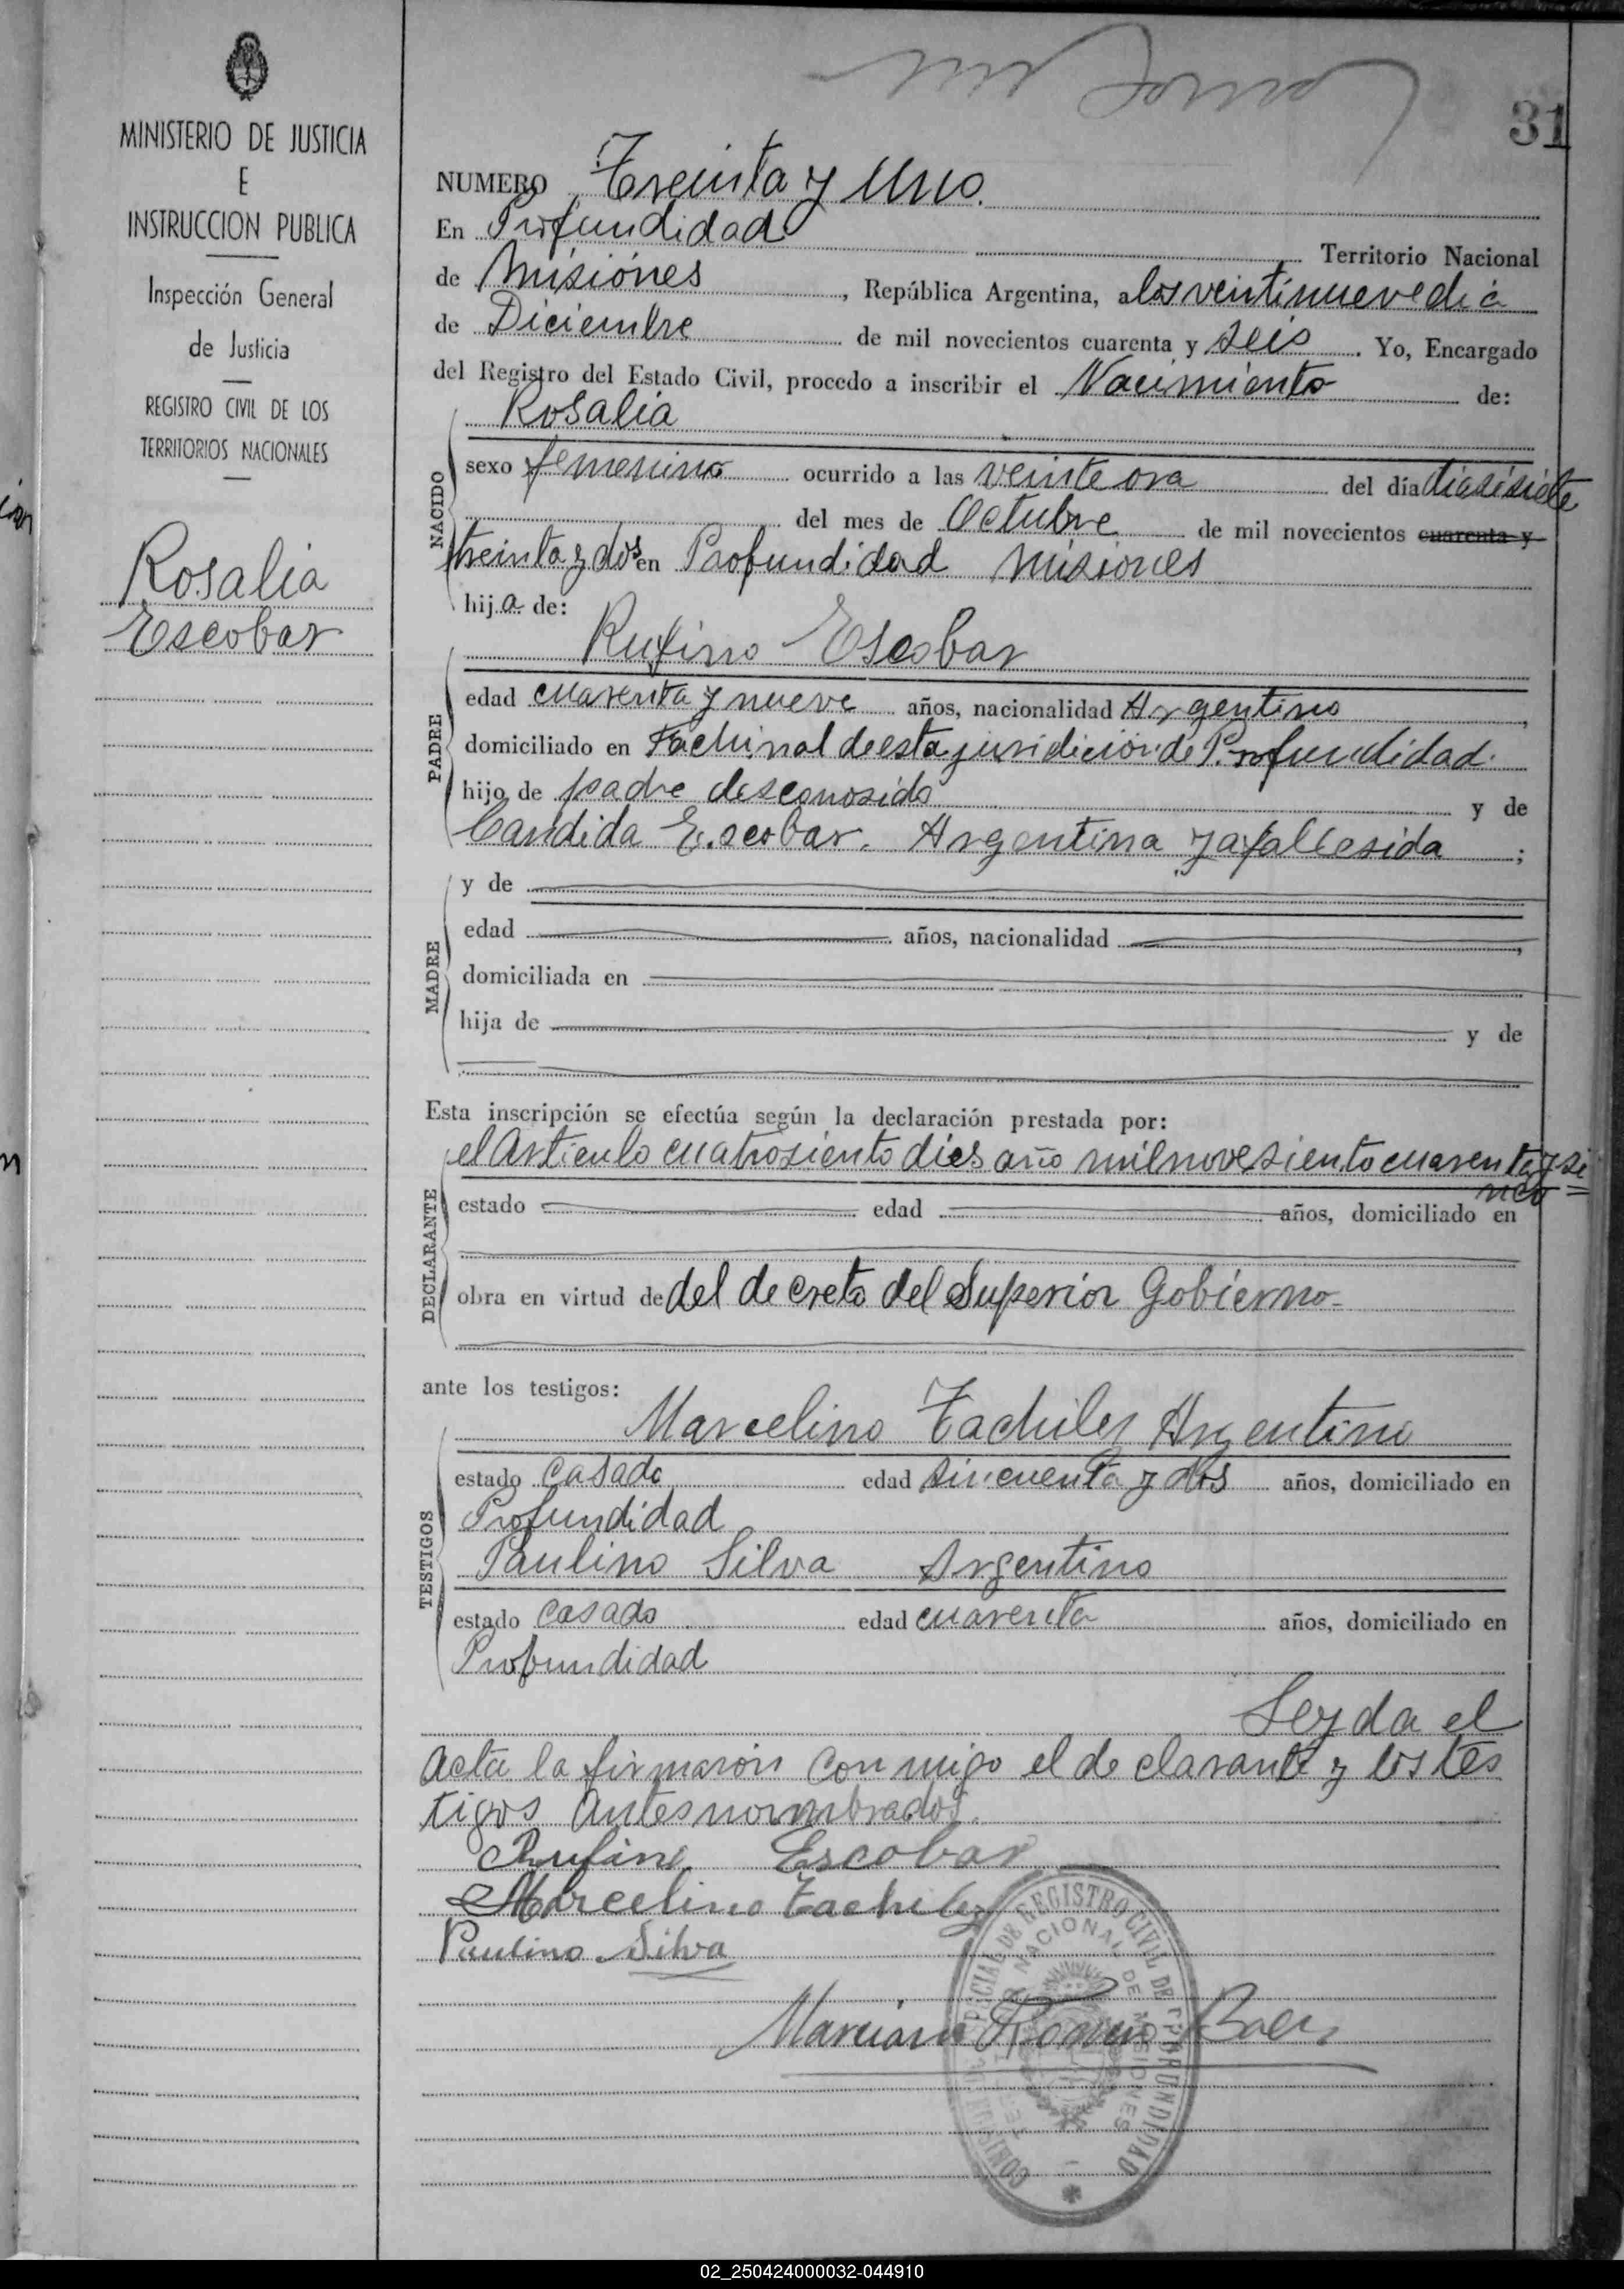 31
MINISTERIO DE JUSTICIA
E
INSTRUCCION PUBLICA
Inspección General
de Justicia
REGISTRO CIVIL DE LOS
TERRITORIOS NACIONALES
Rosalia
Escobar
NUMERO Treinta y Uno.
En Profundidad Territorio Nacional
de Misiónes, República Argentina, a los veintinueve dia
de Diciembre de mil novecientos cuarenta y seis. Yo, Encargado
del Registro del Estado Civil, procedo a inscribir el Nacimiento de:
NACIDO
Rosalia
sexo femenino ocurrido a las veinte ora del día diesisiete
del mes de Octubre de mil novecientos cuarenta y
treinta y dos en Profundidad Misiones
hija de:
PADRE
Rufino Escobar
edad cuarenta y nueve años, nacionalidad Argentino,
domiciliado en Fachinal de esta juridición de Profundidad.
hijo de padre desconosido y de
Candida Escobar. Argentina ya fallesida;
MADRE
y de
edad años, nacionalidad,
domiciliada en
hija de y de
Esta inscripción se efectúa según la declaración prestada por:
DECLARANTE
el Artículo cuatrosiento dies año milnovesiento cuarenta y si
nco=
estado edad años, domiciliado en
obra en virtud de del decreto del Superior Gobierno-
ante los testigos:
TESTIGOS
Marcelino Tachiles Argentino
estado casado edad sincuenta y dos años, domiciliado en
Profundidad
Paulino Silva Argentino
estado casado edad cuarenta años, domiciliado en
Profundidad
Leyda el
acta la firmarón conmigo el declarante y los tes
tigos antes nombrados.
Rufino Escobar
Marcelino Tachiles
Paulino Silva
REGISTRO CIVIL DE PROFUNDIDAD
NACIONAL DE MISIONES
02_250424000032-044910